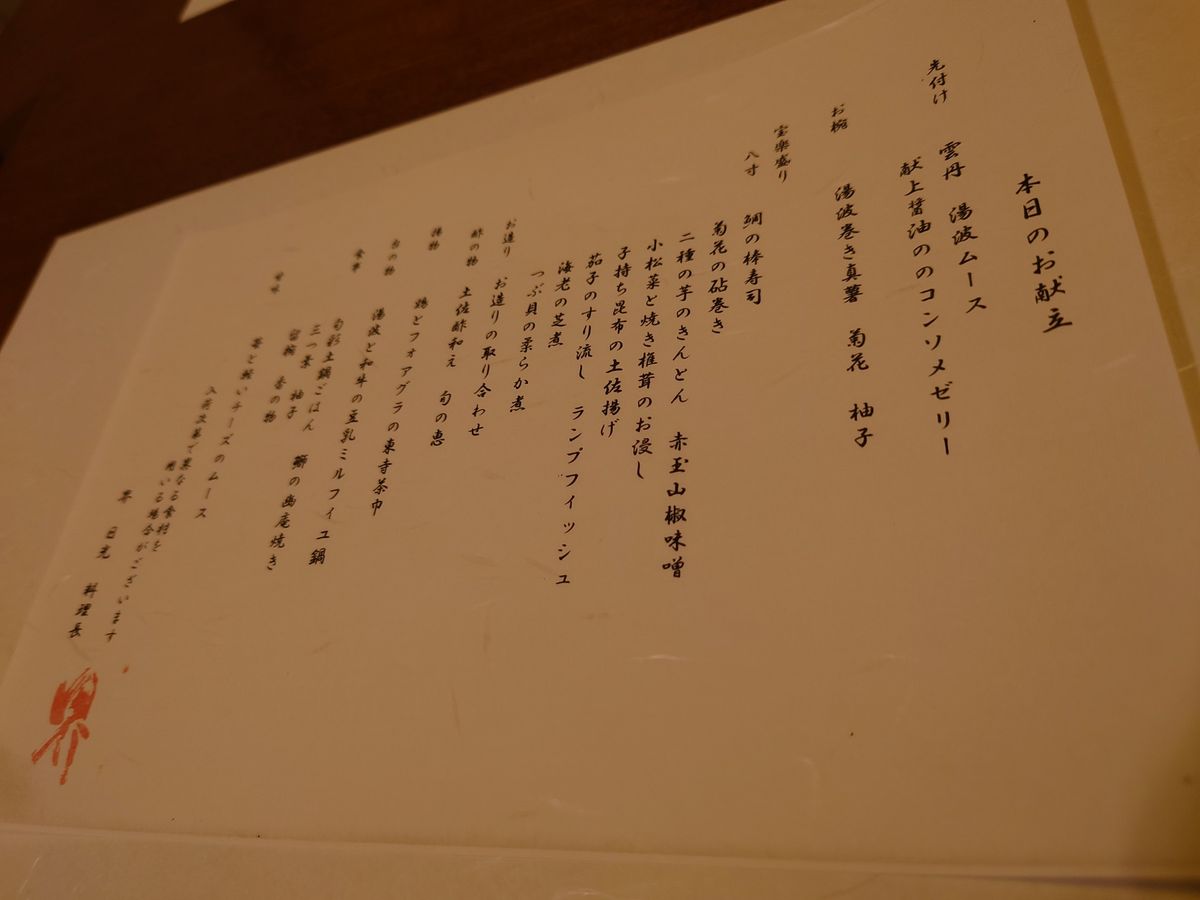 本日のお献立
先付け 雲丹 湯波ムース
献上醤油ののコンソメゼリー
お椀 湯波巻き真薯 菊花 柚子
宝楽盛り
八寸 鯛の棒寿司
菊花の砧巻き
二種の芋のきんとん 赤玉山椒味噌
小松菜と焼き椎茸のお浸し
子持ち昆布の土佐揚げ
茄子のすり流し ランプフィッシュ
海老の芝煮
つぶ貝の柔らか煮
お造り お造りの取り合わせ
酢の物 土佐酢和え 旬の恵
揚物 鶏とフォアグラの東寺茶巾
台の物 湯波と和牛の豆乳ミルフィユ鍋
食事 旬彩土鍋ごはん 鰤の幽庵焼き
三つ葉 柚子
留椀 香の物
甘味 苺と軽いチーズのムース
入荷次第で異なる食材を
用いる場合がございます
界 日光 料理長
界